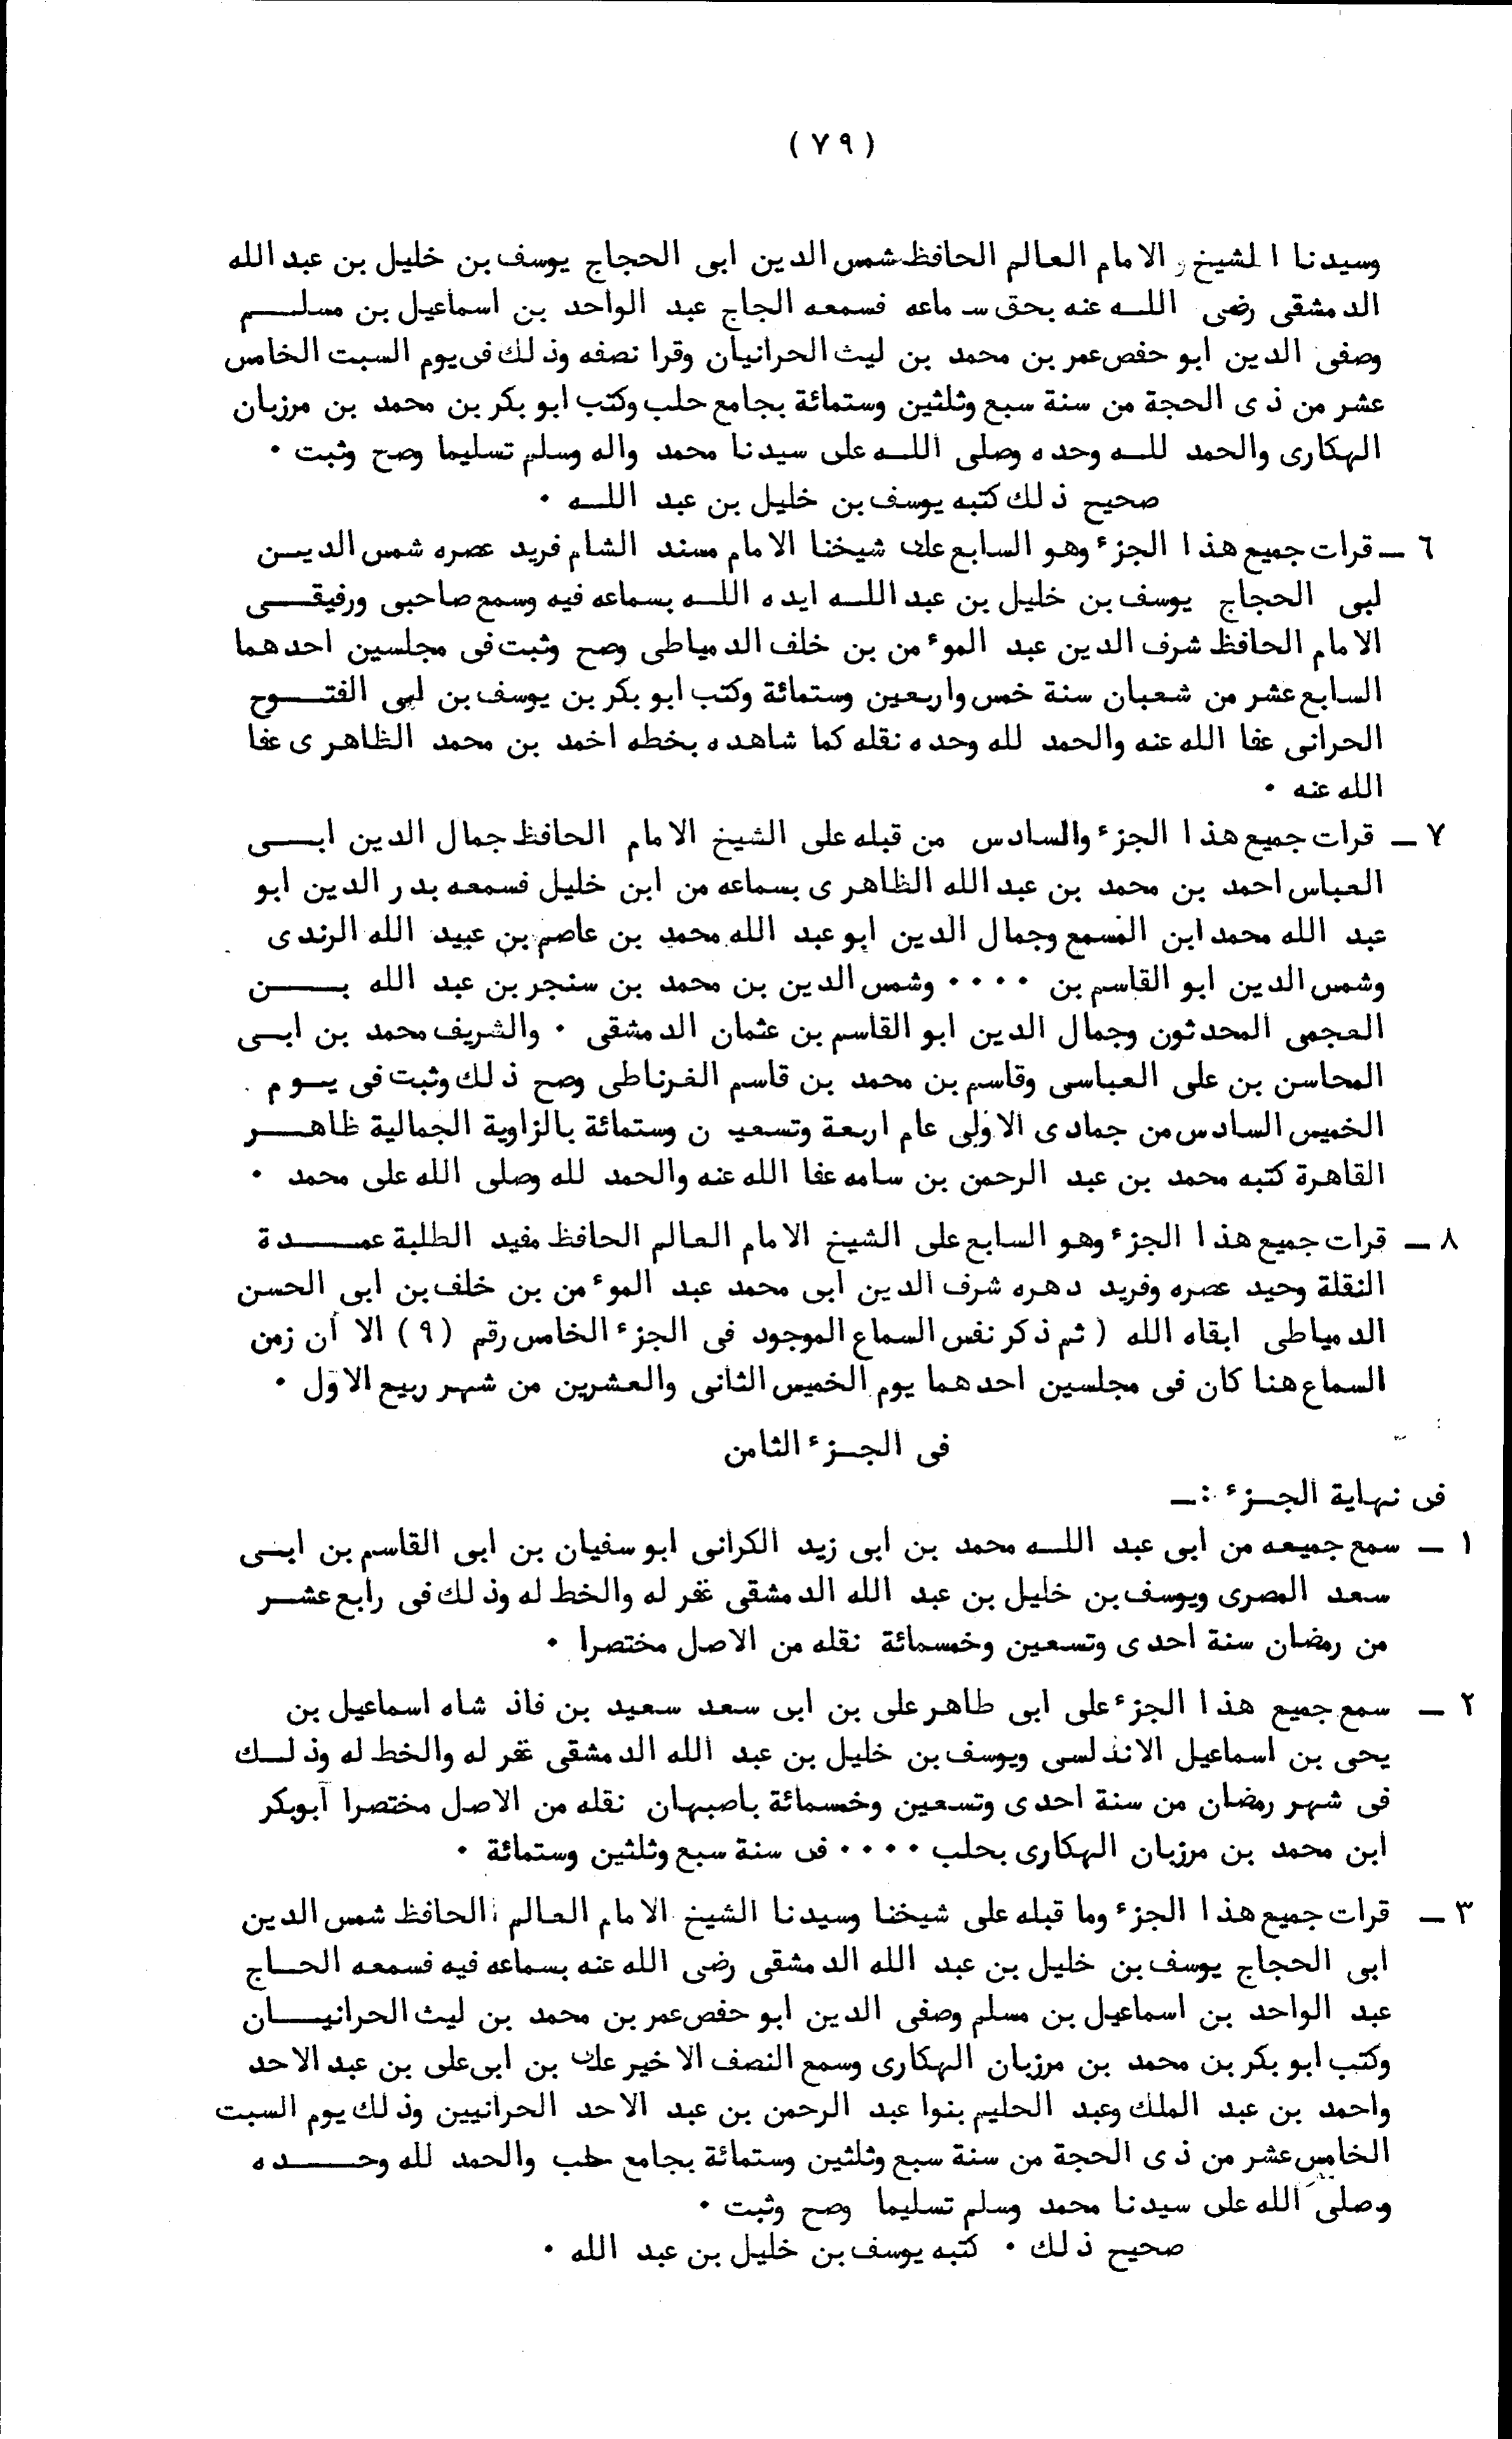 (٧٩)
وسيدنا الشيخ الامام العالم الحافظ شمس الدين ابى الحجاج يوسف بن خليل بن عبد الله
الدمشقى رضى اللـه عنه بحق سـماعه فسمعه الجاج عبد الواحد بن اسماعيل بن مسلـــم
وصفى الدين ابو حفص عمر بن محمد بن ليث الحرانيان وقرا نصفه وذلك فى يوم السبت الخامس
عشر من ذى الحجة من سنة سبع وثلثين وستمائة بجامع حلب وكتب ابو بكر بن محمد بن مرزبان
الهكارى والحمد للـه وحده وصلى اللـه على سيدنا محمد واله وسلم تسليما وصح وثبت ٠
صحيح ذلك كتبه يوسف بن خليل بن عبد اللـه ٠
٦ ـ قرات جميع هذا الجزء وهو السابع على شيخنا الامام مسند الشام فريد عصره شمس الديـن
لبى الحجاج يوسف بن خليل بن عبد اللـه ايده اللـه بسماعه فيه وسمع صاحبى ورفيقــى
الامام الحافظ شرف الدين عبد الموءمن بن خلف الدمياطى وصح وثبت فى مجلسين احدهما
السابع عشر من شعبان سنة خمس واربعين وستمائة وكتب ابو بكر بن يوسف بن لبى الفتــوح
الحرانى عفا الله عنه والحمد لله وحده نقله كما شاهده بخطه احمد بن محمد الظاهرى عفا
الله عنه ٠
٧ ـ قرات جميع هذا الجزء والسادس من قبله على الشيخ الامام الحافظ جمال الدين ابــى
العباس احمد بن محمد بن عبد الله الظاهرى بسماعه من ابن خليل فسمعه بدر الدين ابو
عبد الله محمد ابن المسمع وجمال الدين ابو عبد الله محمد بن عاصم بن عبيد الله الرندى
وشمس الدين ابو القاسم بن ٠٠٠٠ وشمس الدين بن محمد بن سنجر بن عبد الله بـــن
العجمى المحدثون وجمال الدين ابو القاسم بن عثمان الدمشقى ٠ والشريف محمد بن ابــى
المحاسن بن على العباسى وقاسم بن محمد بن قاسم الغرناطى وصح ذلك وثبت فى يــوم
الخميس السادس من جمادى الاولى عام اربعة وتسعين وستمائة بالزاوية الجمالية ظاهـــر
القاهرة كتبه محمد بن عبد الرحمن بن سامه عفا الله عنه والحمد لله وصلى الله على محمد ٠
٨ ـ قرات جميع هذا الجزء وهو السابع على الشيخ الامام العالم الحافظ مفيد الطلبة عمـــدة
النقلة وحيد عصره وفريد دهره شرف الدين ابى محمد عبد الموءمن بن خلف بن ابى الحسن
الدمياطى ابقاه الله (ثم ذكر نفس السماع الموجود فى الجزء الخامس رقم (٩) الا أن زمن
السماع هنا كان فى مجلسين احدهما يوم الخميس الثانى والعشرين من شهر ربيع الاول ٠
فى الجـزء الثامن
فى نهاية الجـزء :ـ
١ ـ سمع جميعه من ابى عبد اللـه محمد بن ابى زيد الكرانى ابو سفيان بن ابى القاسم بن ابـى
سعد المصرى ويوسف بن خليل بن عبد الله الدمشقى غفر له والخط له وذلك فى رابع عشــر
من رمضان سنة احدى وتسعين وخمسمائة نقله من الاصل مختصرا ٠
٢ ـ سمع جميع هذا الجزء على ابى طاهر على بن ابى سعد سعيد بن فاذ شاه اسماعيل بن
يحى بن اسماعيل الاندلسى ويوسف بن خليل بن عبد الله الدمشقى غفر له والخط له وذلــك
فى شهر رمضان من سنة احدى وتسعين وخمسمائة باصبهان نقله من الاصل مختصرا أبوبكر
ابن محمد بن مرزبان الهكارى بحلب ٠٠٠٠ فى سنة سبع وثلثين وستمائة ٠
٣ ـ قرات جميع هذا الجزء وما قبله على شيخنا وسيدنا الشيخ الامام العالم الحافظ شمس الدين
ابى الحجاج يوسف بن خليل بن عبد الله الدمشقى رضى الله عنه بسماعه فيه فسمعه الحــاج
عبد الواحد بن اسماعيل بن مسلم وصفى الدين ابو حفص عمر بن محمد بن ليث الحرانيـــان
وكتب ابو بكر بن محمد بن مرزبان الهكارى وسمع النصف الاخير على بن ابى على بن عبد الاحد
واحمد بن عبد الملك وعبد الحليم بنوا عبد الرحمن بن عبد الاحد الحرانيين وذلك يوم السبت
الخامس عشر من ذى الحجة من سنة سبع وثلثين وستمائة بجامع حلب والحمد لله وحـــده
وصلى الله على سيدنا محمد وسلم تسليما وصح وثبت ٠
صحيح ذلك ٠ كتبه يوسف بن خليل بن عبد الله ٠